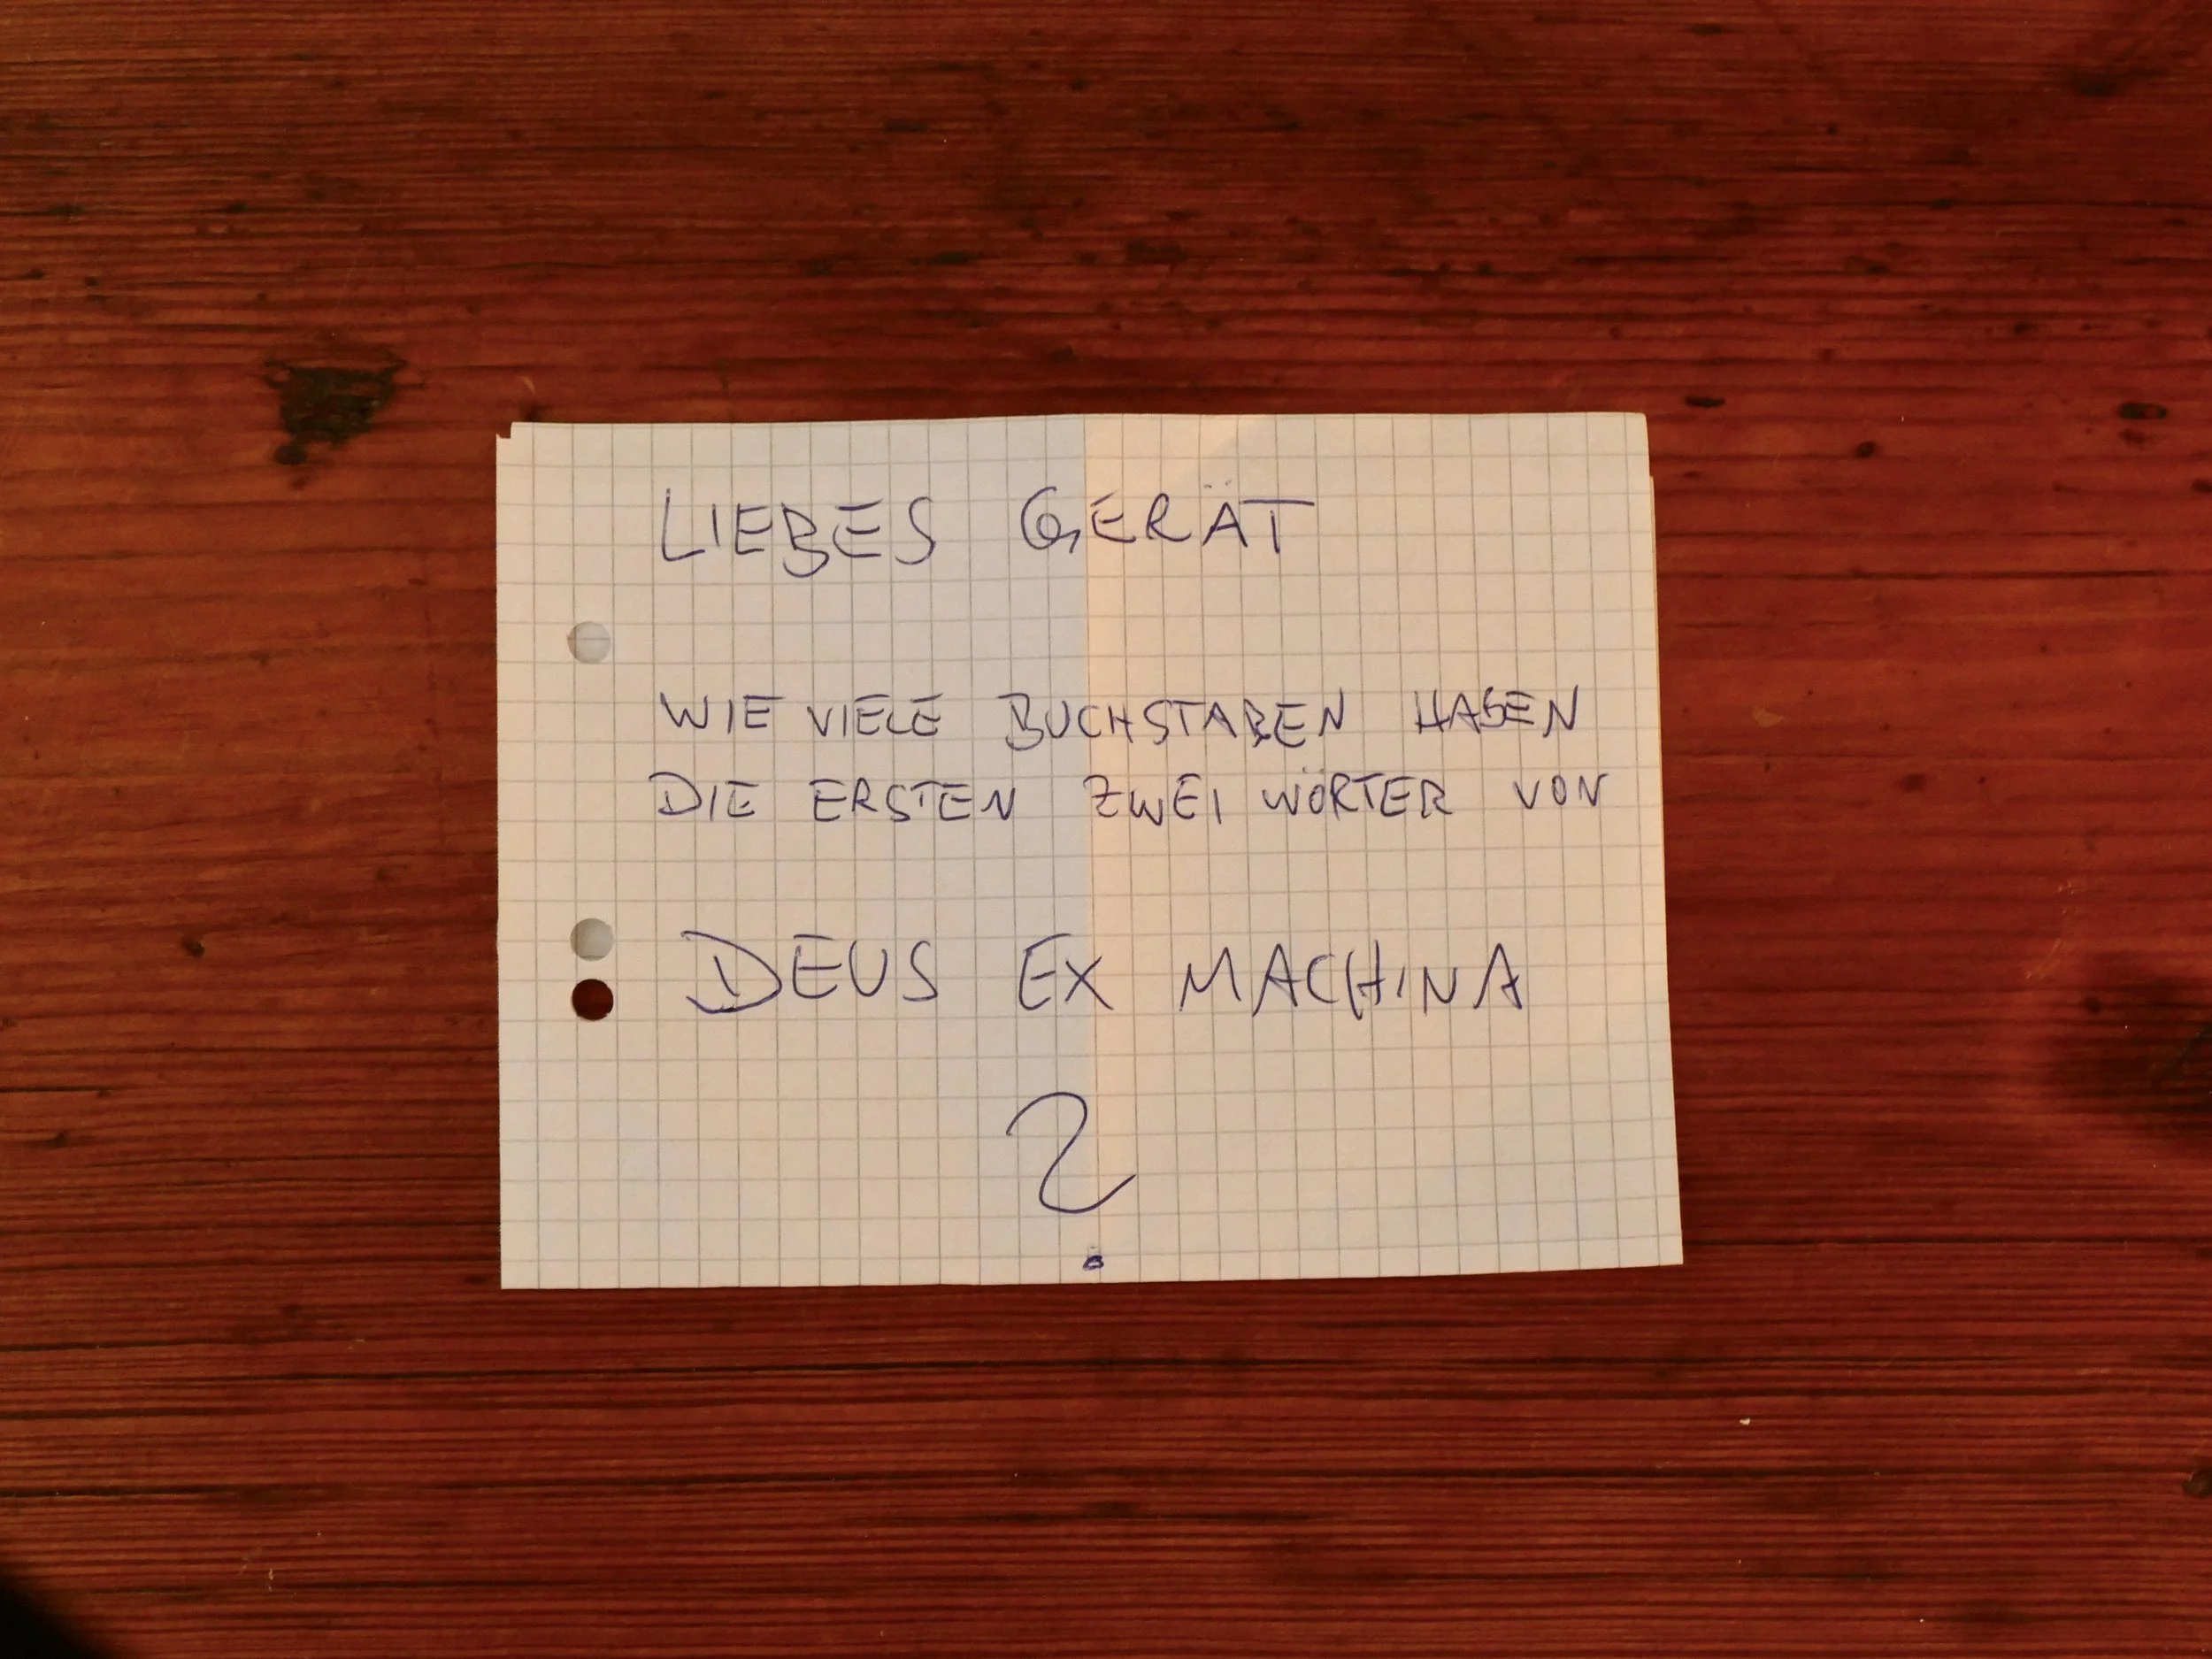 LIEBES GERÄT
WIE VIELE BUCHSTABEN HABEN
DIE ERSTEN ZWEI WÖRTER VON
DEUS EX MACHINA
?